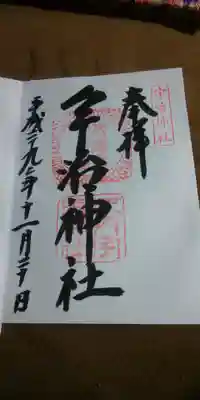 奉拝
宇治神社
平成二九年十一月二十日